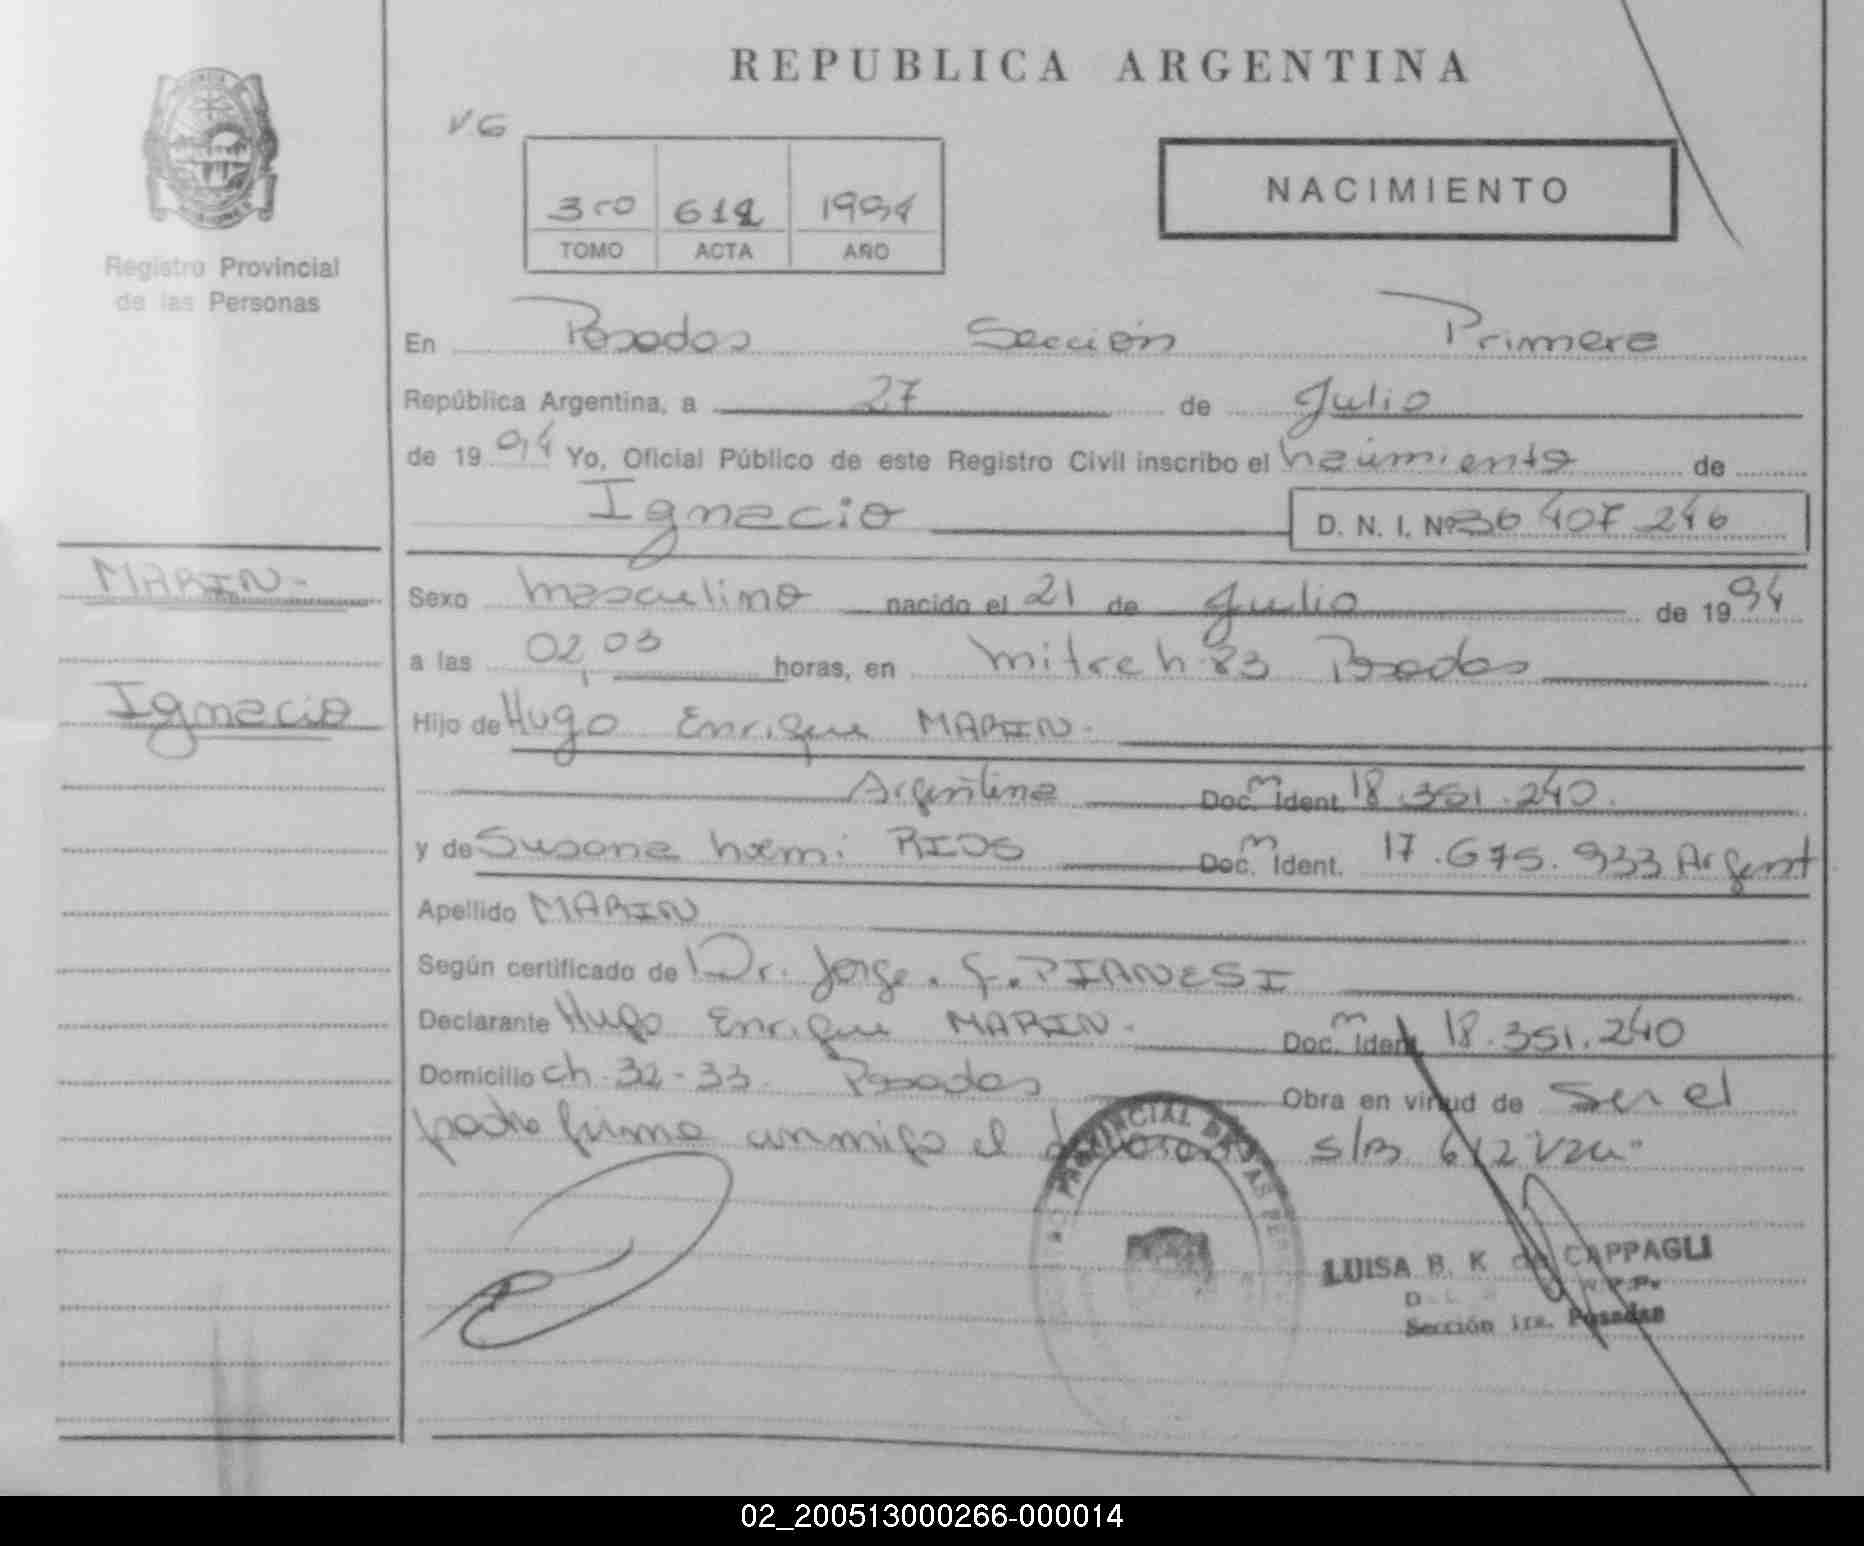 REPUBLICA ARGENTINA
VG
3ro 612 1994
TOMO ACTA AÑO
NACIMIENTO
Registro Provincial
de las Personas
En Posadas Sección Primera
República Argentina, a 27 de Julio
de 19 94 Yo, Oficial Público de este Registro Civil inscribo el nacimiento de
Ignacio D. N. I. Nº 36 407 246
MARIN-
Sexo masculino nacido el 21 de Julio de 19 94
a las 02,03 horas, en mitre n 83 Posadas
Ignacio
Hijo de Hugo Enrique MARIN-
Argentino Doc. m Ident. 18.351.240.
y de Susana Noemi RIOS Doc. m Ident. 17.675.933 Argent
Apellido MARIN
Según certificado de Dr. Jorge. G. PIANESI
Declarante Hugo Enrique MARIN- Doc. m Ident. 18.351.240
Domicilio ch. 32-33. Posadas Obra en virtud de ser el
padre firma conmigo el s/B 612
PROVINCIAL DE LAS PER
LUISA B. K. de CAPPAGLI
Sección 1ra. Posadas
02_200513000266-000014